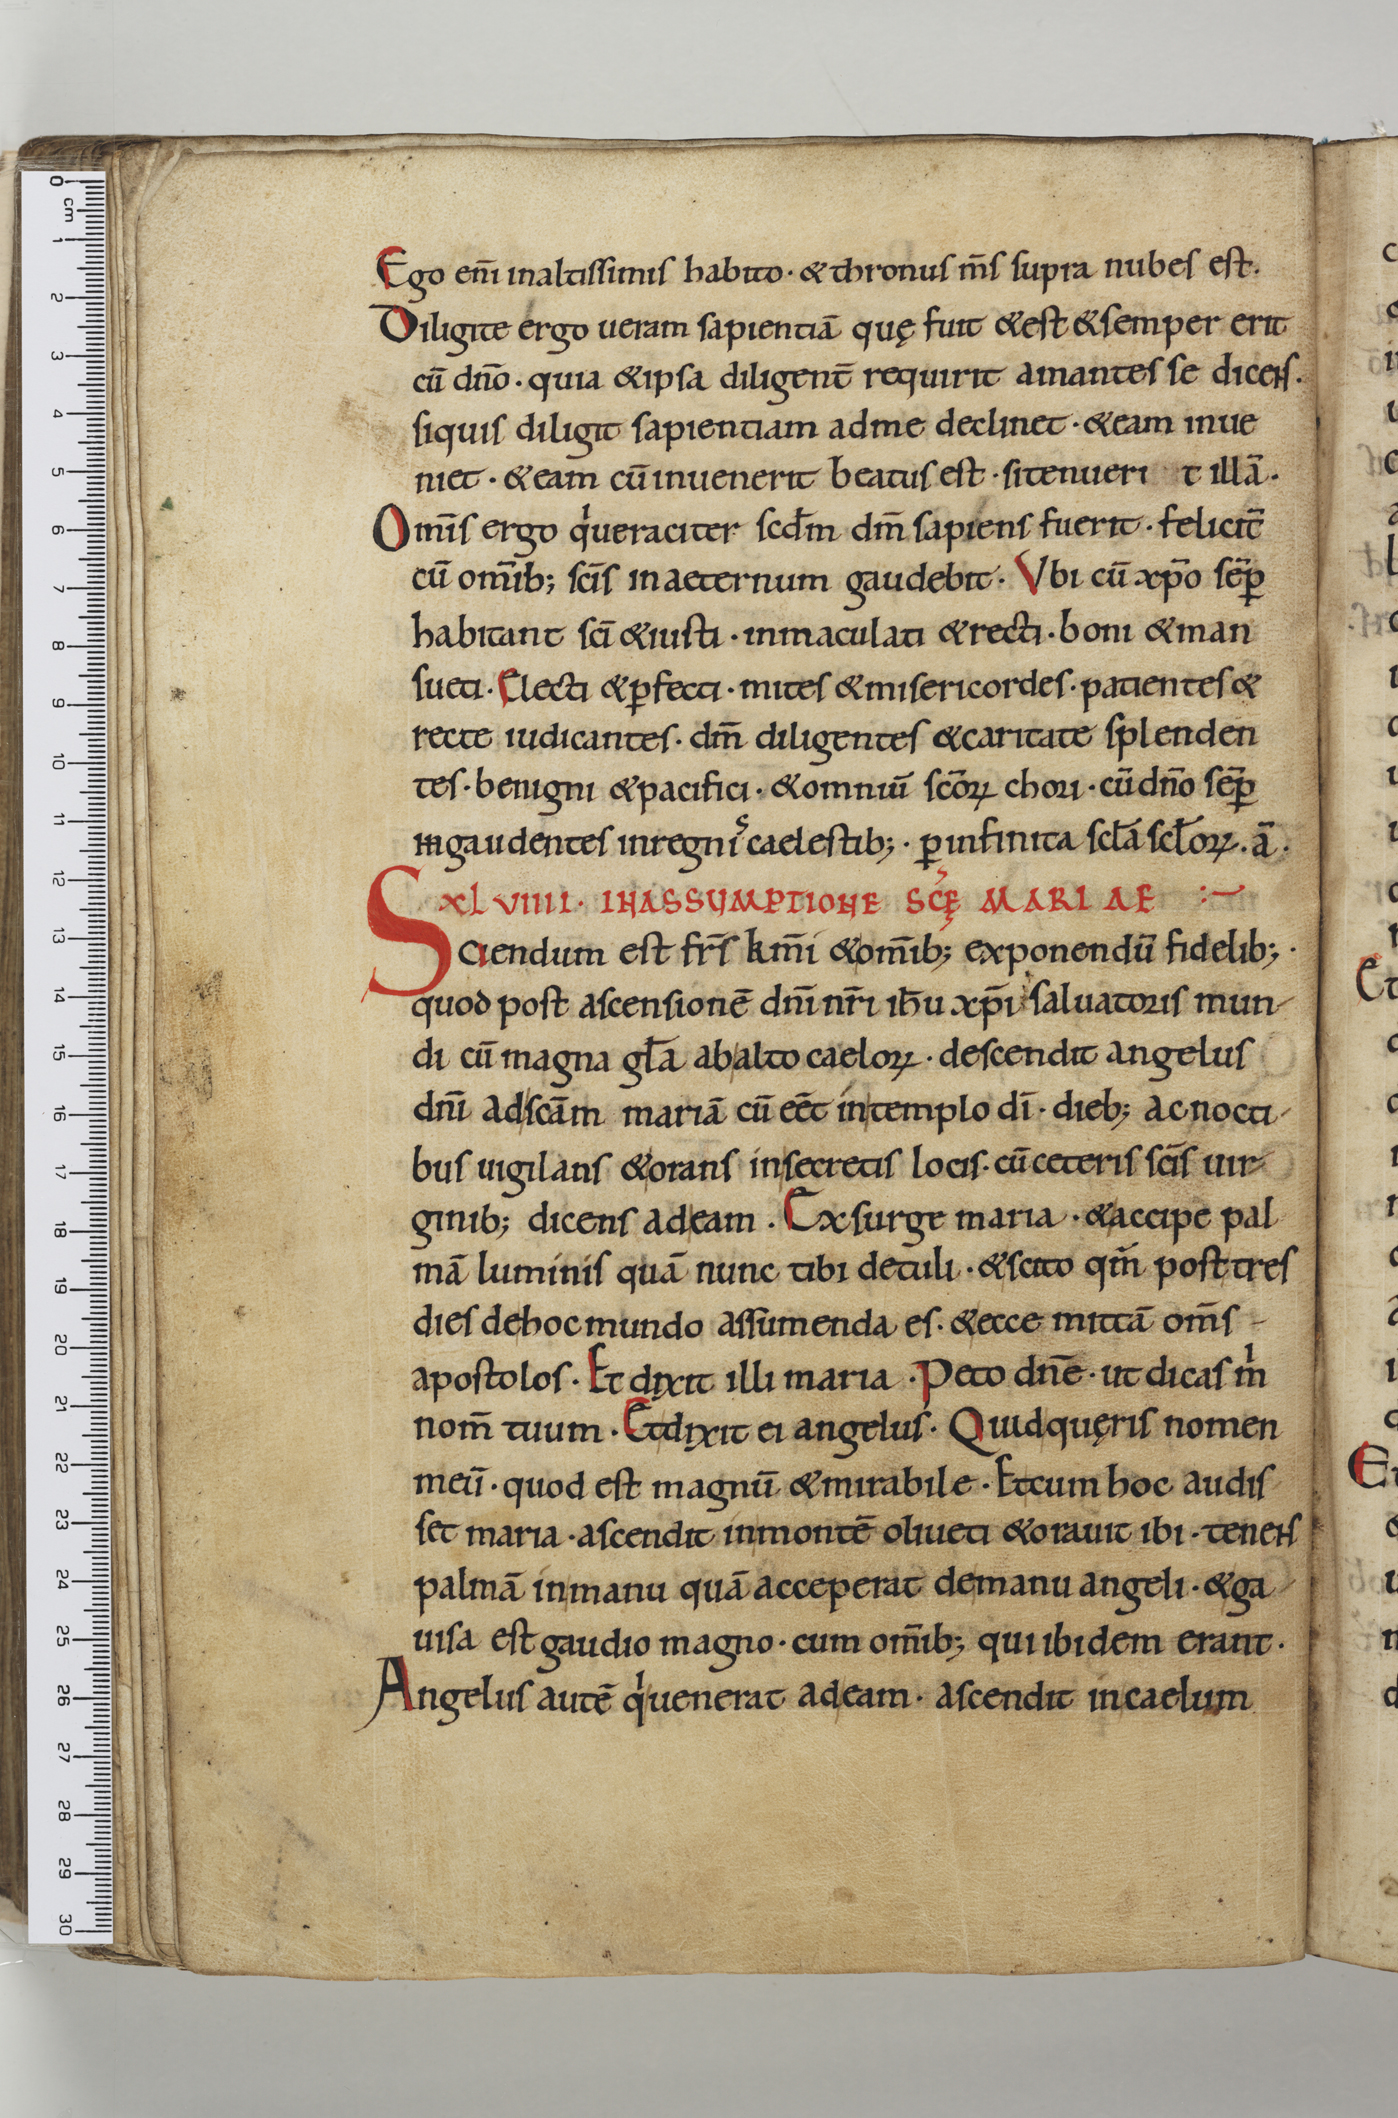 Ego eni̅ inaltissimis habito · & thronus m̅s supra nubes est.
Diligite ergo ueram sapientia̅ quę fuit & est & semper erit
cu̅ dn̅o · quia & ipsa diligent̅ requirit amantes se dicens.
siquis diligit sapientiam adme declinet · & eam inue
niet · & eam cu̅ inuenerit beatus est · si tenueri t illa̅ ·
Omi̅s ergo qͥ ueraciter scd̅m dm̅ sapiens fuerit · felicit̅
cu̅ omi̅b; sci̅s in aeternum gaudebit · Vbi cu̅ xp̅o se̅p̲
habitant sci̅ & iusti · inmaculati & recti · boni & man
sueti · Electi & p̲fecti · mites & misericordes · patientes &
recte iudicantes · dm̅ diligentes & caritate splenden
tes · benigni & pacifici · & omniu̅ sco̅ꝝ chori · cu̅ dn̅o se̅p̲
ingaudentes inregniˢ caelestib; · p̲ infinita scl̅a scl̅oꝝ . a̅ .
xlviiii · IN ASSVMPTIONE SCĘ̅ MARIAE :~
Sciendum est fr̅s km̅i & omi̅b; exponendu̅ fidelib; ·
quod post ascensione̅ dni̅ nr̅i ih̅u xp̅i saluatoris mun-
di cu̅ magna gl̅a abalto caeloꝝ · descendit angelus
dni̅ ad sca̅m maria̅ cu̅ ee̅t in templo di̅ · dieb; ac nocti-
bus uigilans & orans in secretis locis · cu̅ ceteris sci̅s uir-
ginib; dicens ad eam . Exsurge maria · & accipe pal
ma̅ luminis qua̅ nunc tibi detuli · & scito qm̅ post tres
dies de hoc mundo assumenda es · & ecce mitta̅ om̅s -
apostolos · Et dixit illi maria · Peto dn̅e · ut dicas mͥ
nom̅ tuum · Et dixit ei angelus · Quid quęris nomen
meu̅ · quod est magnu̅ & mirabile · Et cum hoc audis
set maria · ascendit in monte̅ oliueti & orauit ibi · tenens
palma̅ in manu qua̅ acceperat de manu angeli · & ga-
uisa est gaudio magno · cum omi̅b; qui ibidem erant ·
Angelus aute̅ qͥ uenerat ad eam · ascendit in caelum